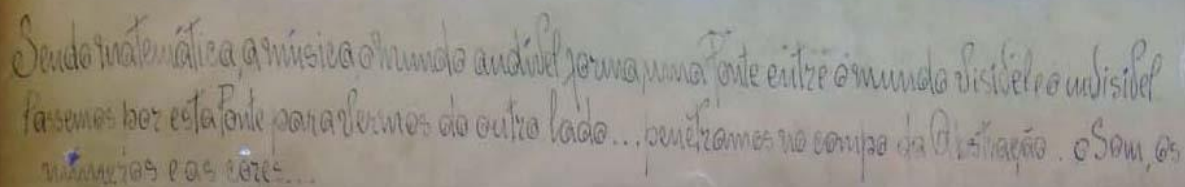 Sendo matemática, a música o mundo audível forma uma Ponte entre o mundo visível e o invisível
Passemos por esta Ponte para vermos do outro lado... penetramos no campo da Abstração. o Som, os
números e as cores...